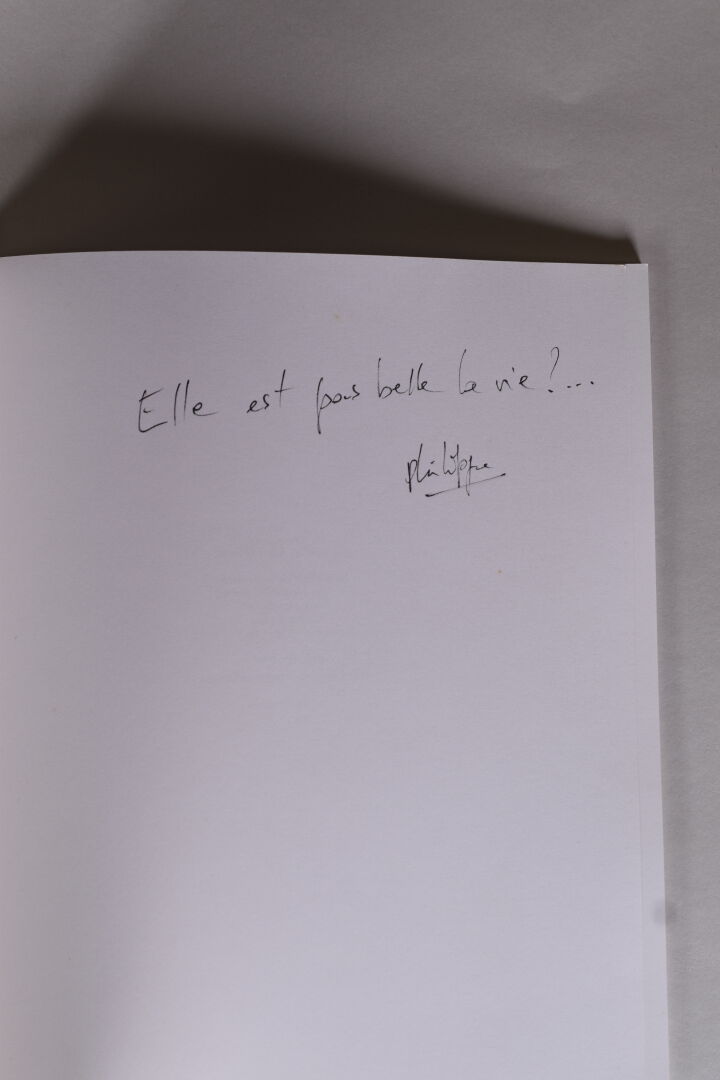 Elle est pas belle la vie ?...
Philippe